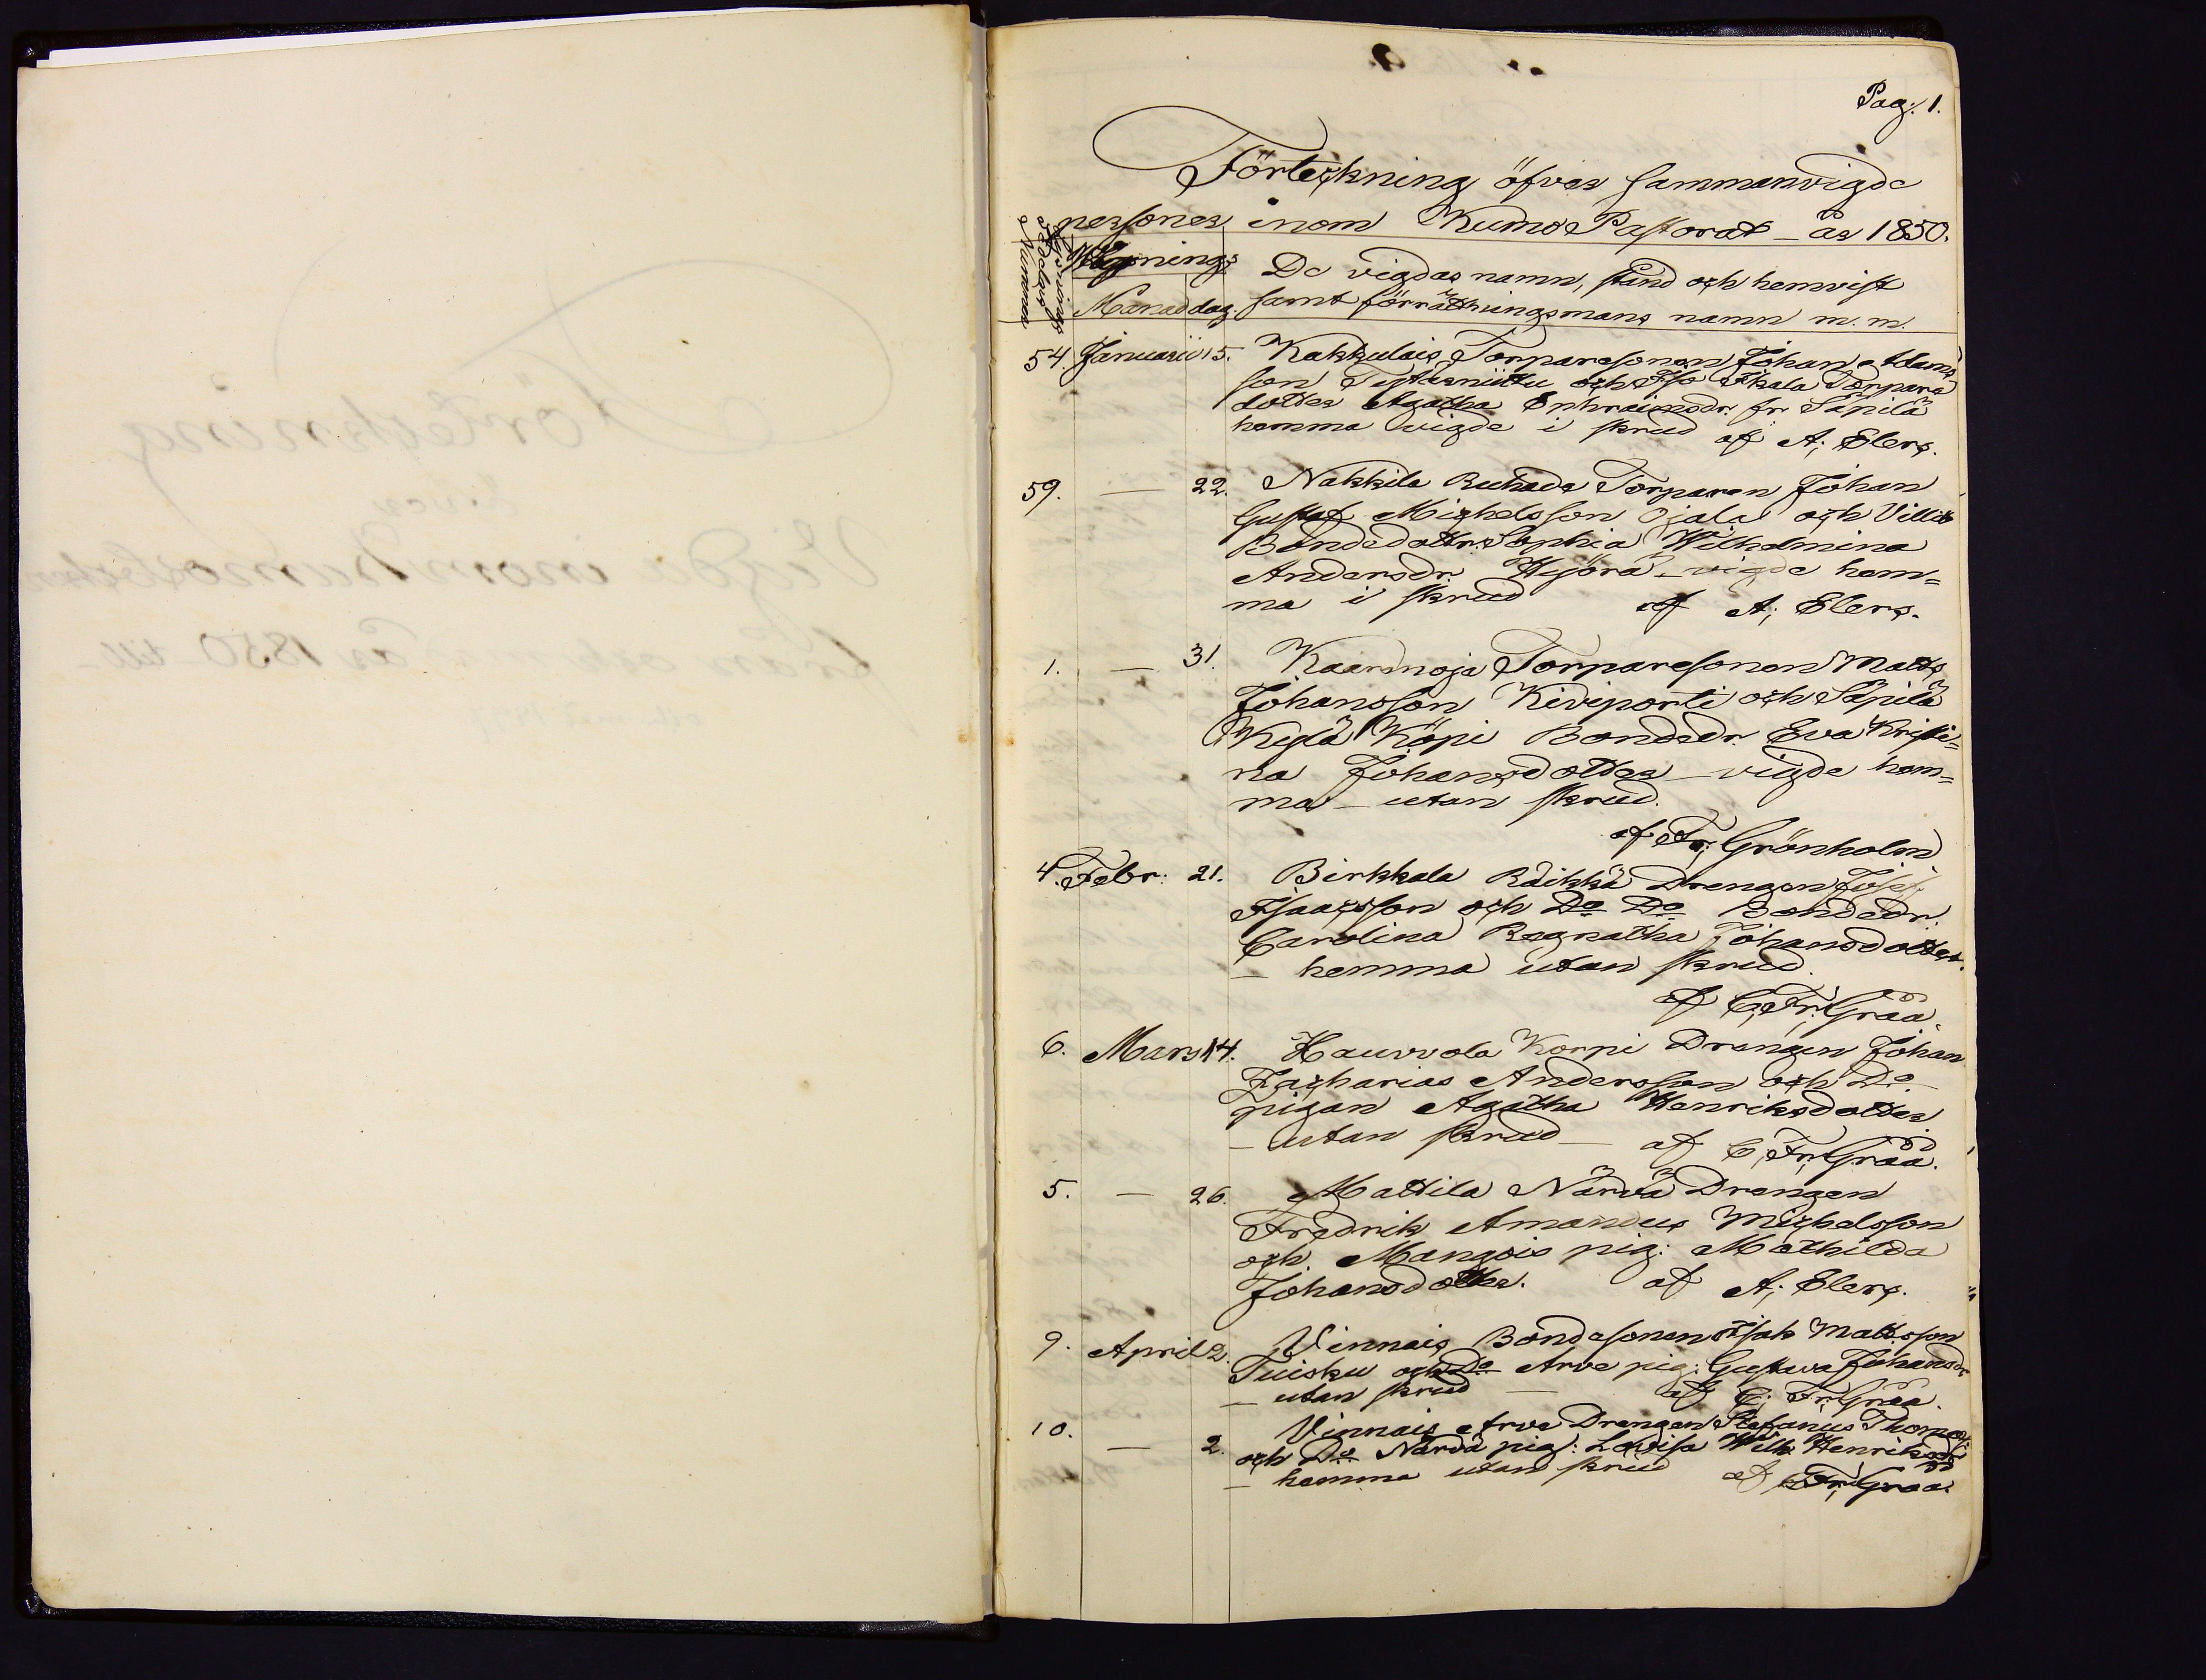 Pag: 1.
Förteckning öfver sammanvigde
personer inom Kumo Pastorat – år 1850.
Lysnings
Sedelns
Nummer
Månad dag.
De vigdas namn, stånd och hemvist
samt förrättningsmans namn m. m.
54. Januarii 15. Kakkulais Torparesonen Johan Adams
son och Torpare
dotter Agatha Ephraimsdr. fr. Säpilä
hemma vigde i skrud af A; Elers.
59. — 22. Nakkila Ruhade Torparen Johan
Gustaf Michelsson Ojala och Villio
Bondedottr. Sophia Wilhelmina
Andersdr. – vigde hem=
ma i skrud af A; Elers.
1. — 31. Kaarenoja Torparesonen Matts
Johansson Kiviporti och Säpilä
Kylä Köpi Bondedr. Eva Kristi=
na Johansdotter – vigde hem=
ma – utan skrud.
af Fr; Grönholm
4. Febr: 21. Birkkala Räikkä Drengen Josef
Isaacsson och Do Do Bondedr.
Carolina Regnatha Johansdotter.
– hemma utan skrud.
af C; Fr; Gråå.
6. Mars 14. Hauvola Korpi Drengen Johan
Zacharias Andersson och Do
pigan Agatha Henriksdotter
– utan skrud – af C; Fr; Gråå.
5. — 26. Mattila Närvä Drengen
Fredrik Amandus Michelsson
och Mangois pig: Mathilda
Johansdotter. af A; Elers.
9. April 2. Vinnais Bondesonen Isak Mattsson
Tuisku och Do Arve pig: Gustava Johansdr
– utan skrud — af C; Fr; Gråå.
10. — 2. Vinnais Arve Drengen Stefanus Thomas:
och Do Närvä pig: Lovisa Wilh. Henriksdr
– hemma utan skrud af Fr; Gråå.